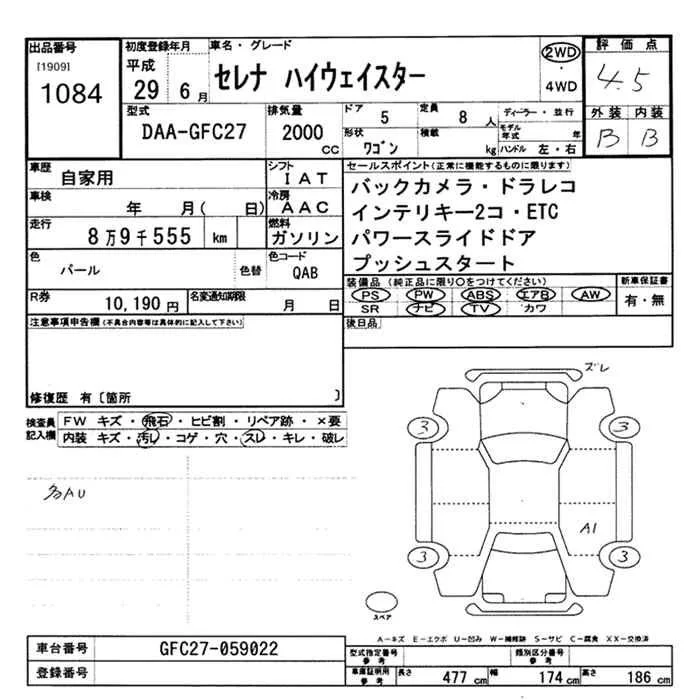 出品番号
[1909]
1084
初度登録年月
平成
29 6月
車名・グレード
セレナ ハイウェイスター
2WD
・
4WD
評価点
4.5
型式
DAA-GFC27
排気量
2000
CC
ドア
5
定員
8人
ディーラー・並行
形状
ワゴン
積載
kg
モデル年式 年
ハンドル 左・右
外装 内装
B B
車歴
自家用
シフト
IAT
車検
年 月( 日)
冷房
AAC
走行
8万9千555 km
燃料
ガソリン
色
パール
色替
色コード
QAB
R券
10,190円
名変通知期限
月 日
セールスポイント(正常に機能するものに限ります)
バックカメラ・ドラレコ
インテリキー2コ・ETC
パワースライドドア
プッシュスタート
装備品(純正品に限り○をつけてください)
PS PW ABS エアB AW
SR ナビ TV カワ
新車保証書
有・無
後日品
注意事項申告欄(不具合内容等は具体的に記入して下さい)
修復歴 有〔箇所 〕
検査員
記入欄
FW キズ・飛石・ヒビ割・リペア跡・×要
内装 キズ・汚レ・コゲ・穴・スレ・キレ・破レ
多AU
ズレ
3 3
A1
3 3
スペア
A−キズ E−エクボ U−凹み W−補修跡 S−サビ C−腐食 XX−交換済
車台番号
GFC27-059022
登録番号
型式指定番号
参考
類別区分番号
参考
車庫証明用
参考
長さ 477 cm 幅 174 cm 高さ 186 cm